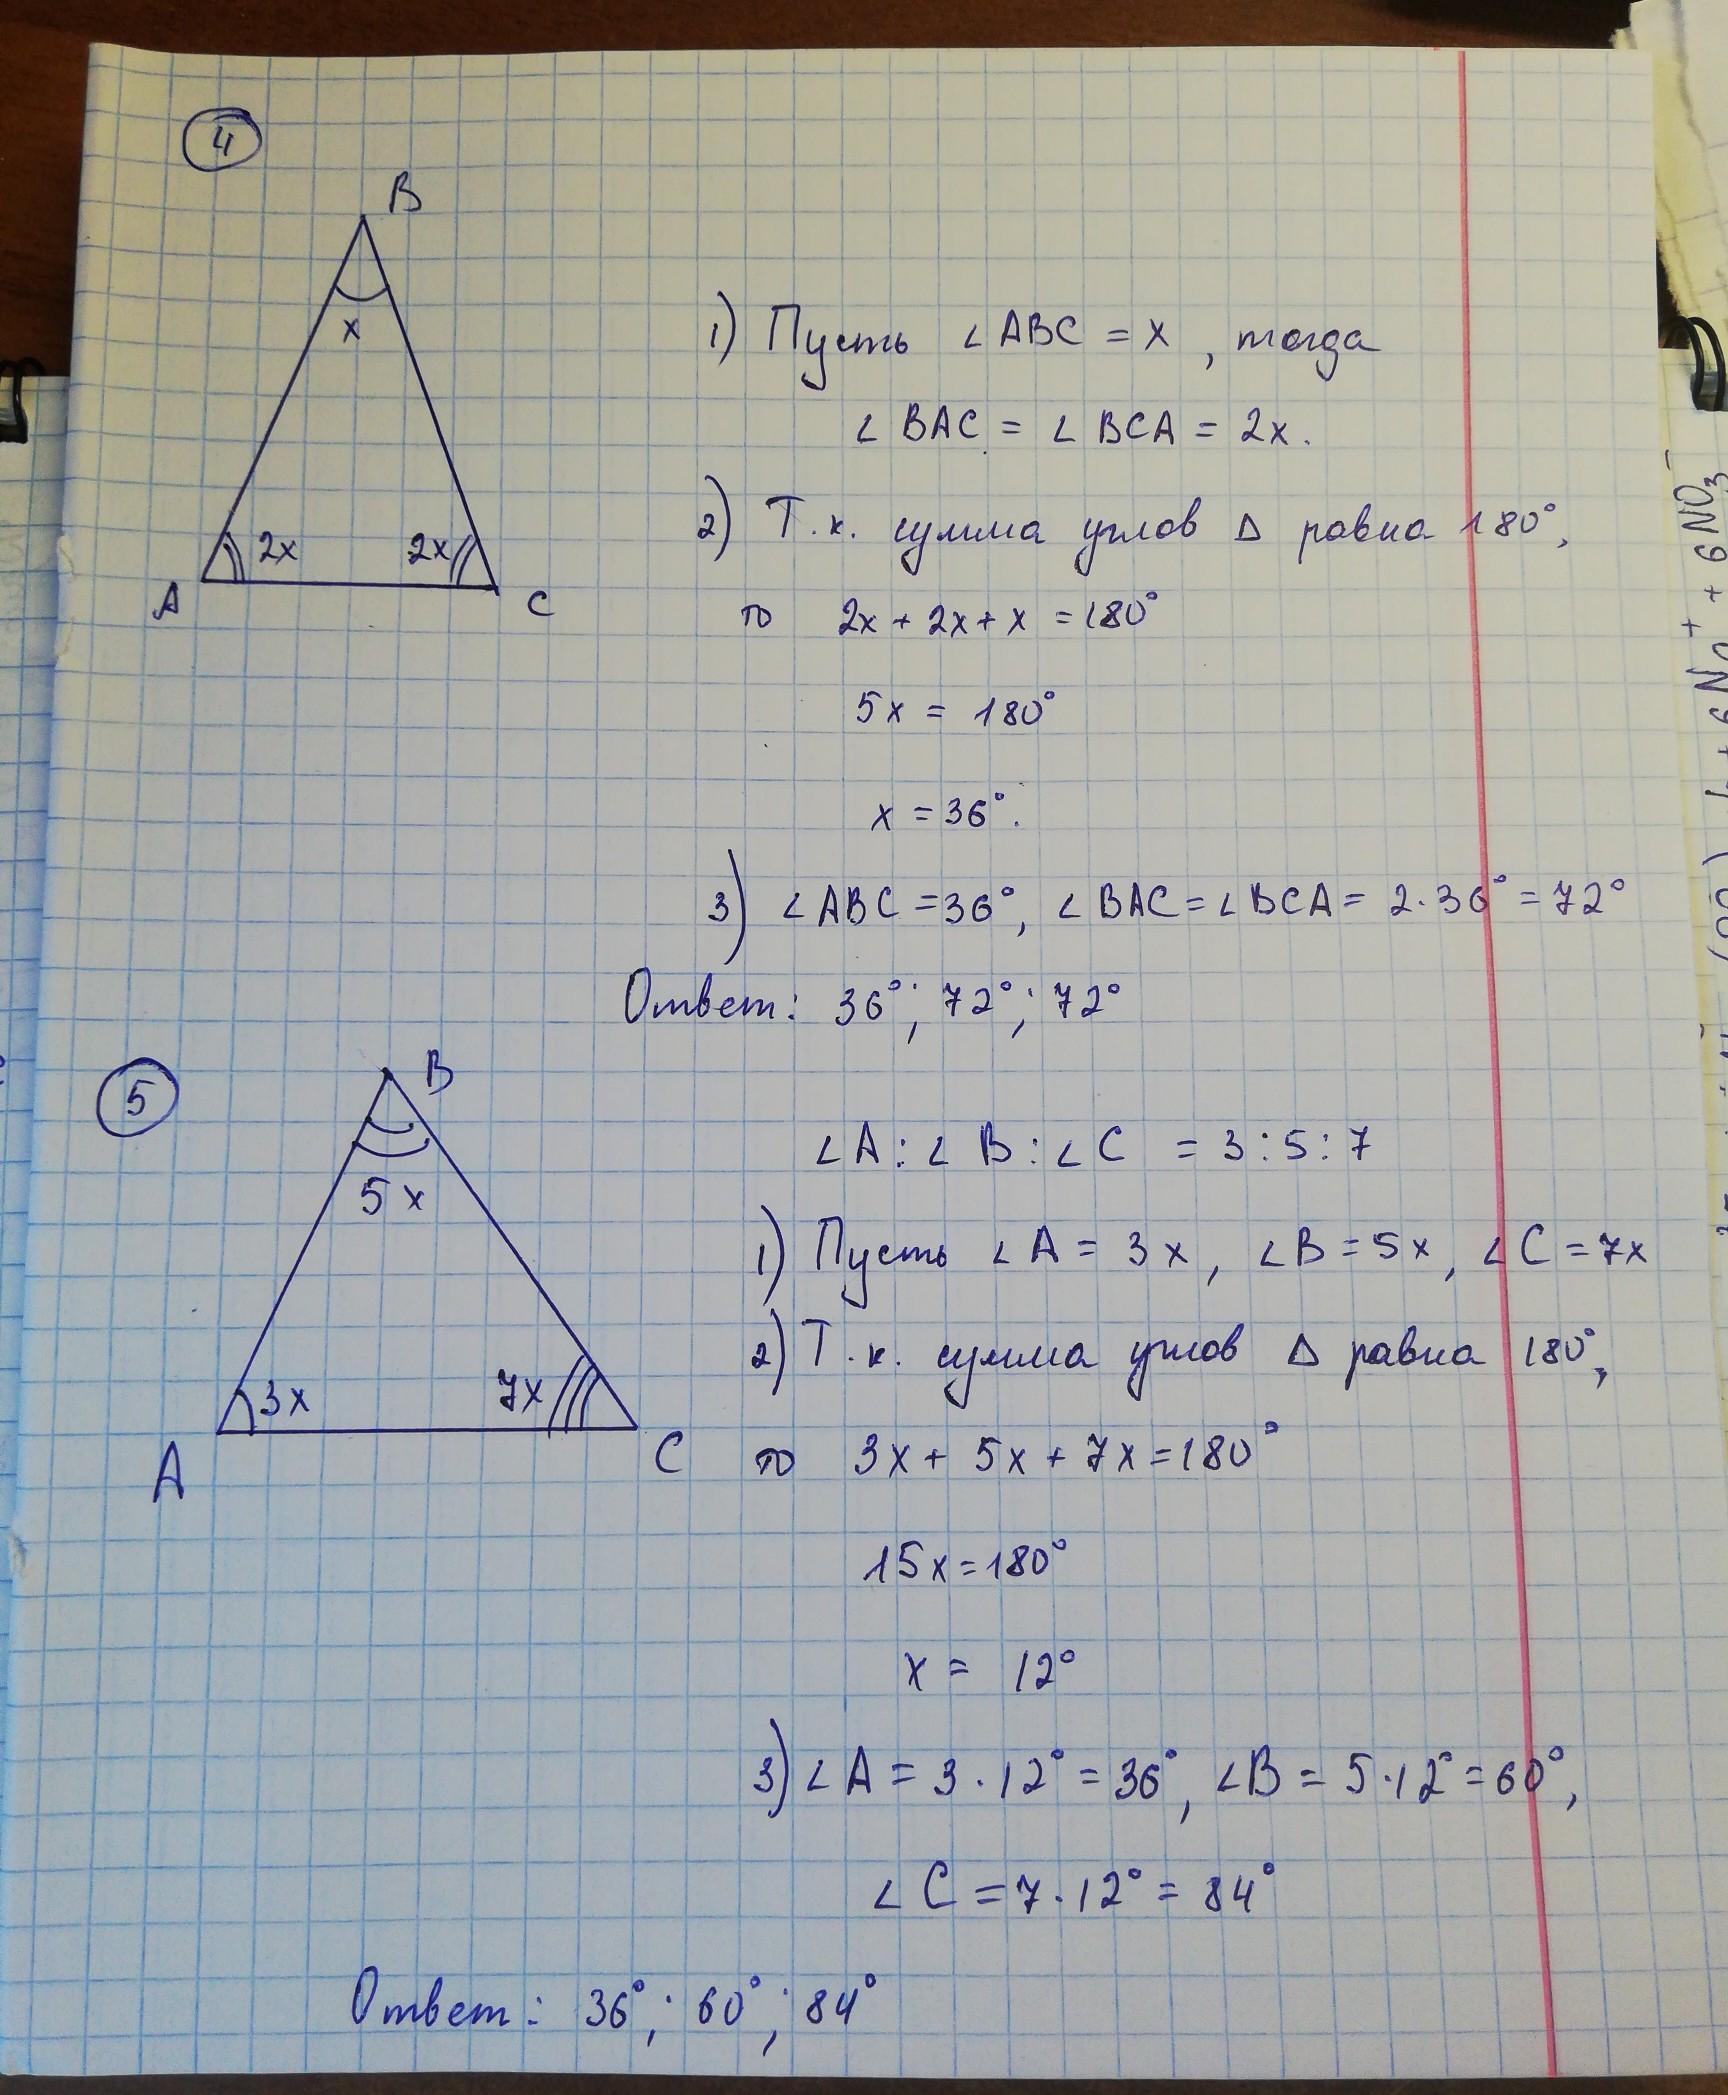 4
B
x
2x 2x
A C
1) Пусть ∠ABC = x, тогда
∠BAC = ∠BCA = 2x.
2) Т.к. сумма углов Δ равна 180°,
то 2x + 2x + x = 180°
5x = 180°
x = 36°.
3) ∠ABC = 36°, ∠BAC = ∠BCA = 2·36° = 72°
Ответ: 36°; 72°; 72°
5
B
5x
3x 7x
A C
∠A : ∠B : ∠C = 3 : 5 : 7
1) Пусть ∠A = 3x, ∠B = 5x, ∠C = 7x
2) Т.к. сумма углов Δ равна 180°,
то 3x + 5x + 7x = 180°
15x = 180°
x = 12°
3) ∠A = 3·12° = 36°, ∠B = 5·12° = 60°,
∠C = 7·12° = 84°
Ответ: 36°; 60°; 84°
+ 6NO₃⁻